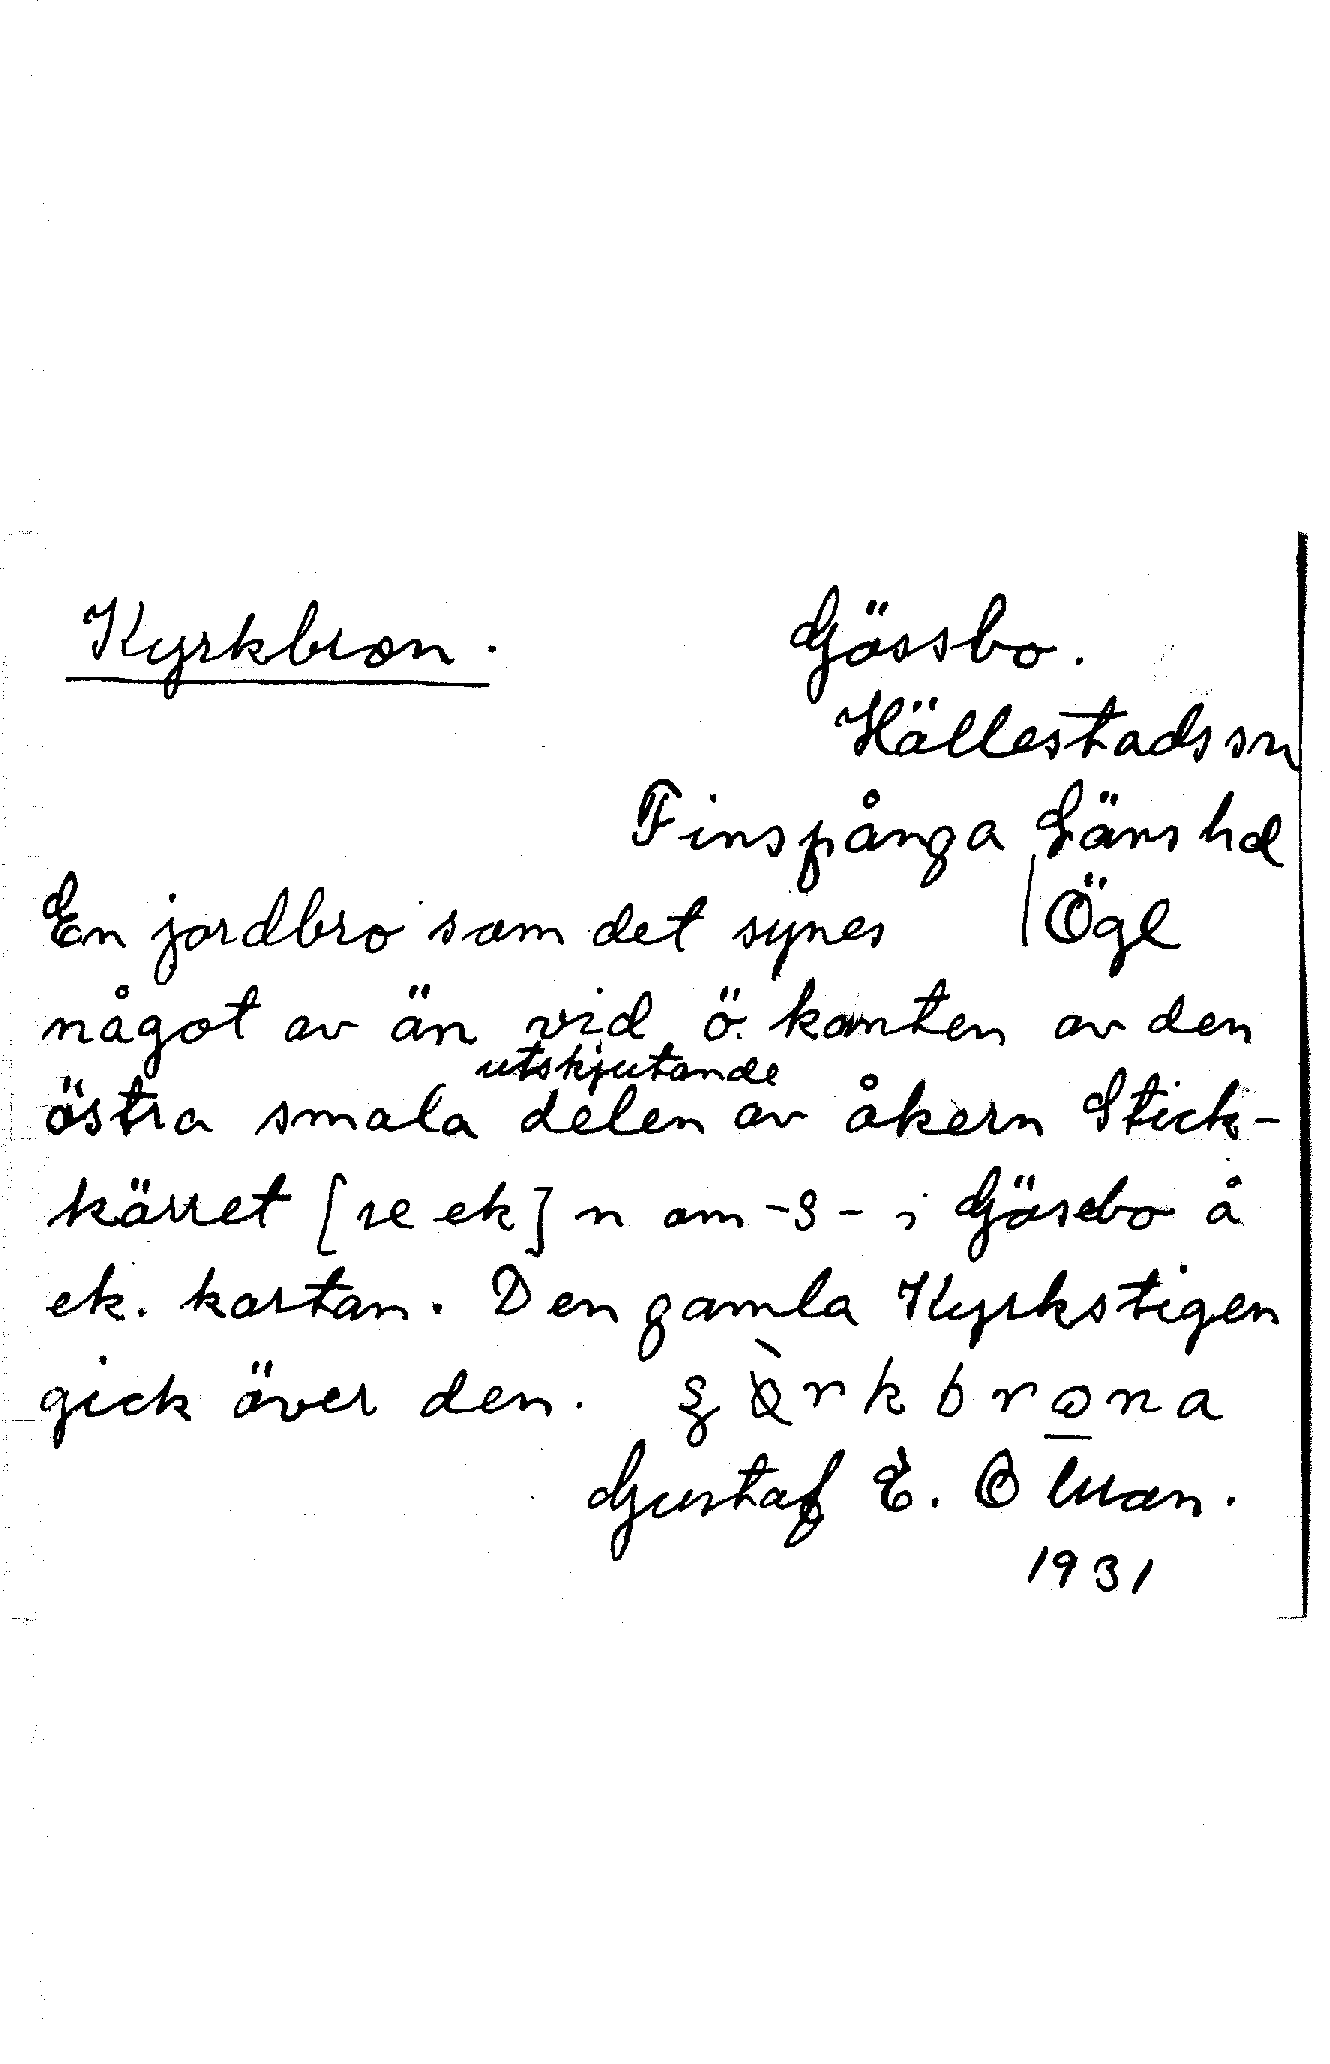 Kyrkbron.
Gössbo.
Hällestads sn
Finspånga Läns hd
Ögl
En jordbro som det synes
något av än vid ö. kanten av den
utskjutande
östra smala delen av åkern Stick-
kärret [se ek] n om -s- i Gösebo å
ek. kartan. Den gamla Kyrkstigen
gick över den.
Gustaf E. Ölman.
1931